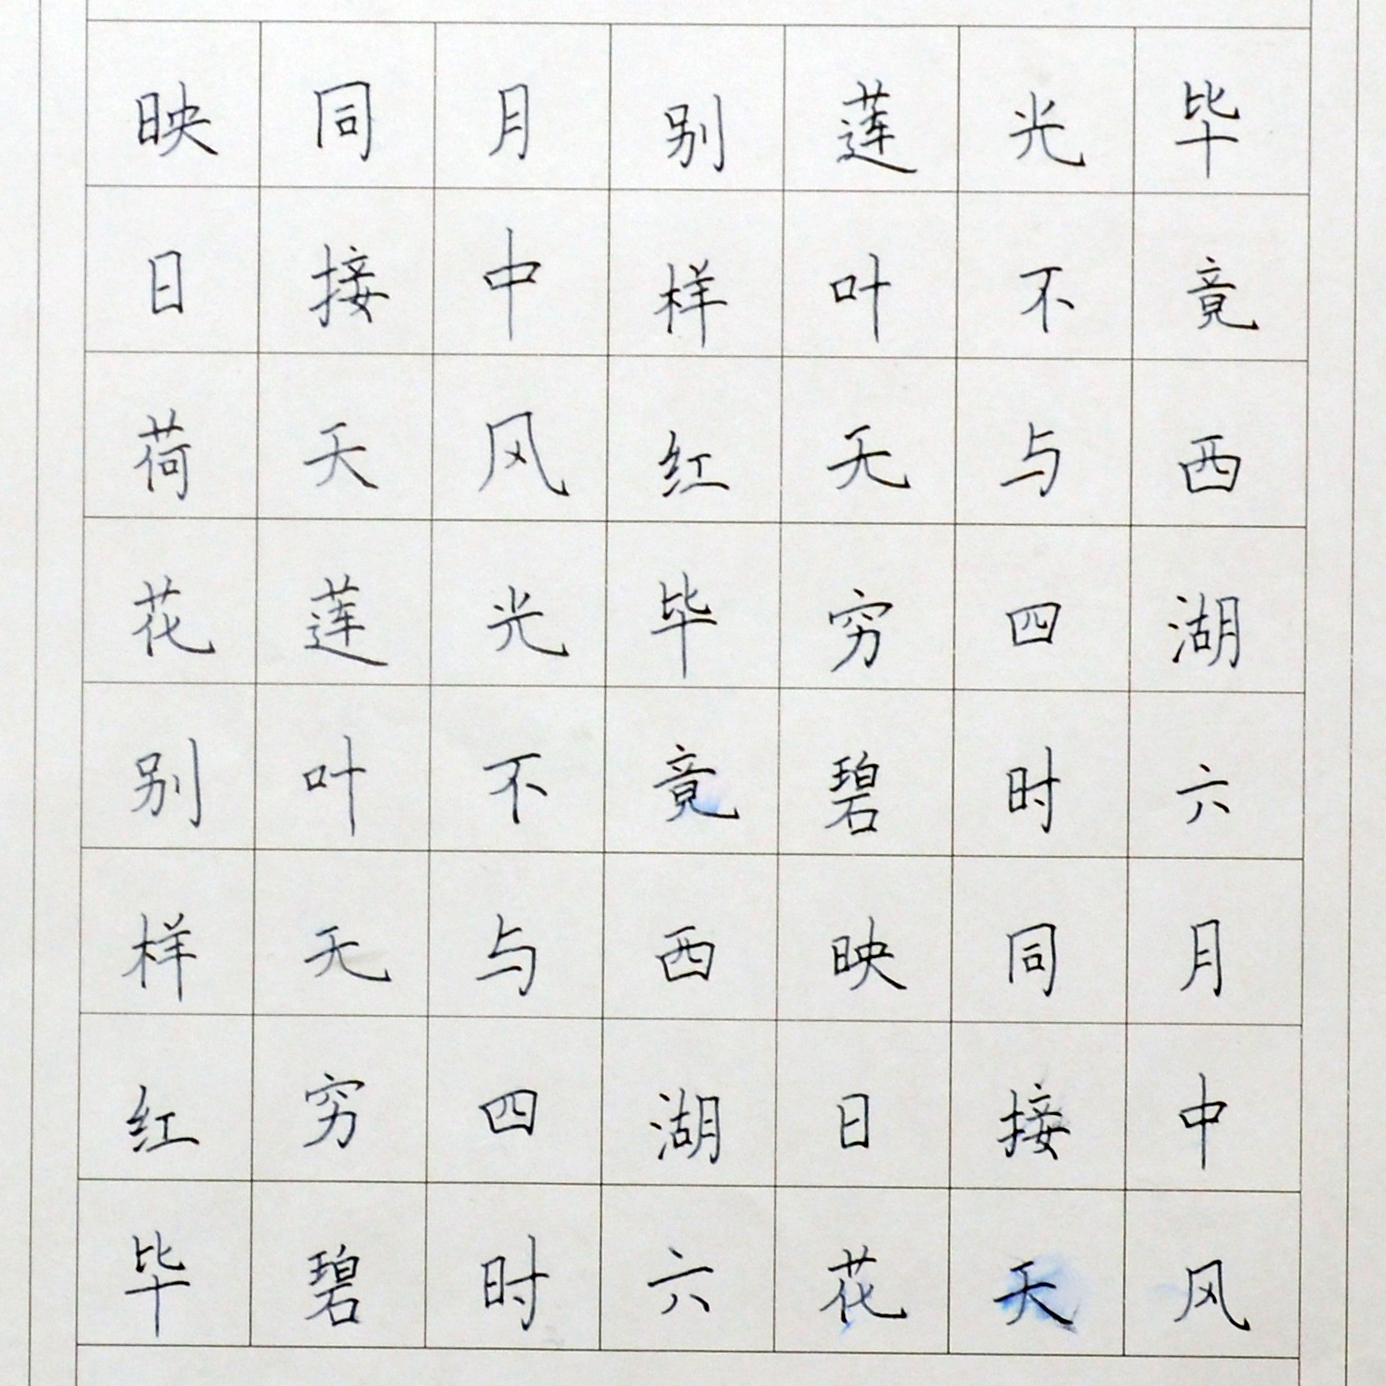 毕竟西湖六月中风
光不与四时同接天
莲叶无穷碧映日花
别样红毕竟西湖六
月中风光不与四时
同接天莲叶无穷碧
映日荷花别样红毕